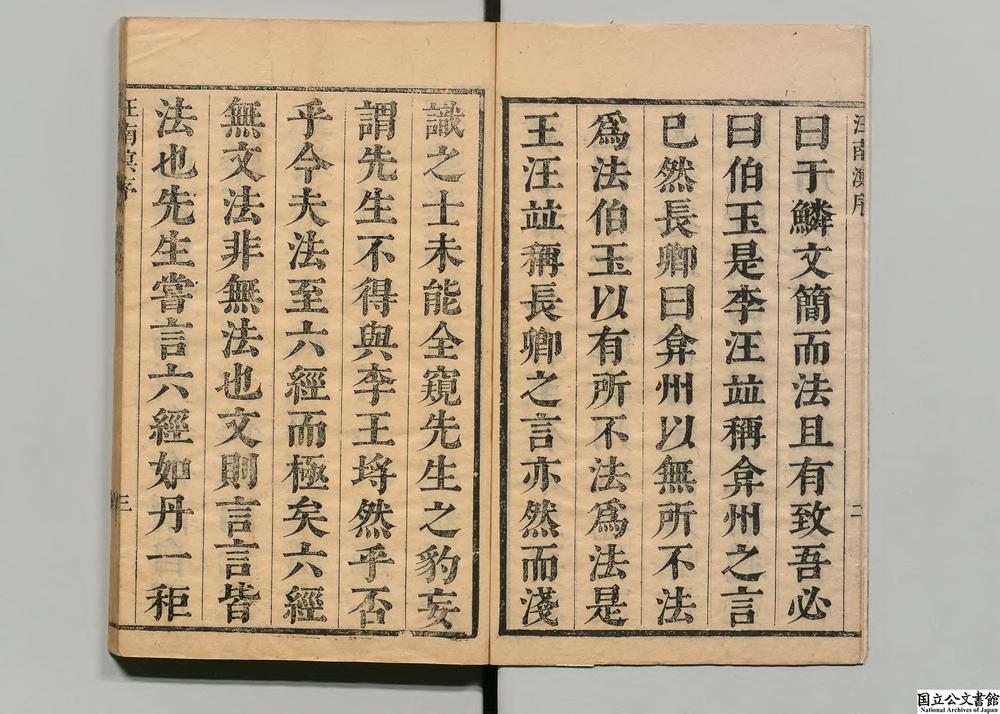 汪南溟序
二
曰于鱗文簡而法且有致吾必
曰伯玉是李汪並稱弇州之言
已然長卿曰弇州以無所不法
爲法伯玉以有所不法爲法是
王汪並稱長卿之言亦然而淺
識之士未能全窺先生之豹妄
謂先生不得與李王埓然乎否
乎今夫法至六經而極矣六經
無文法非無法也文則言言皆
法也先生嘗言六經如丹一秬
汪南溟序
三
国立公文書館
National Archives of Japan